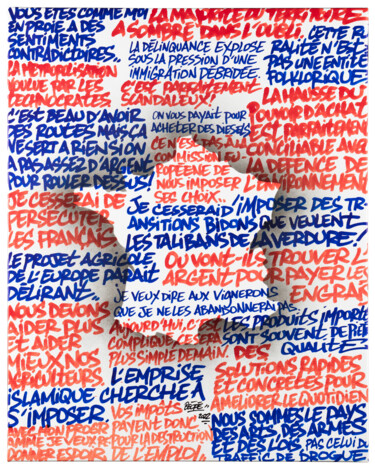 VOUS ETES COMME MOI
EN PROIE A DES
SENTIMENTS
CONTRADICTOIRES..
LA METROPOLISATION
VOULUE PAR LES
TECHNOCRATES
C'EST BEAU D'AVOIR
DES ROUTES MAIS CA
SERT A RIEN SI ON
A PAS ASSEZ D'ARGENT
POUR ROULER DESSUS!
JE CESSERAI DE
PERSECUTER
LES FRANCAIS
LE PROJET AGRICOLE
DE L'EUROPE PARAIT
DELIRANT..
NOUS DEVONS
AIDER PLUS
ET AIDER
MIEUX NOS
AGRICULTEURS
L'EMPRISE
ISLAMIQUE CHERCHE A
S'IMPOSER.
JE VEUX RE
DONNER ESPOIR
LA MAJORITE DU TERRITOIRE
A SOMBRE DANS L'OUBLI..
LA DELINQUANCE EXPLOSE
SOUS LA PRESSION D'UNE
IMMIGRATION DEBRIDEE.
C'EST PARFAITEMENT
SCANDALEUX!
CETTE RU
RALITE N'EST
PAS UNE ENTITE
FOLKLORIQUE
ON VOUS PAYAIT POUR
ACHETER DES DIESELS
CE N'EST PAS A LA
COMMISSION EU
ROPEENE DE
NOUS IMPOSER
SES CHOIX..
LA HAUSSE DU
POUVOIR D'ACHAT
EST PARFAITEMENT
CONCILIABLE AVEC
LA DEFENCE DE
L'ENVIRONNEMENT
JE CESSERAI D'IMPOSER DES TR
ANSITIONS BIDONS QUE VEULENT
LES TALIBANS DE LA VERDURE!
OU VONT-ILS TROUVER L'
ARGENT POUR PAYER LES
ENGRAIS
JE VEUX DIRE AUX VIGNERONS
QUE JE NE LES ABANDONNERAI PAS
AUJOURD'HUI, C'EST
COMPLIQUE, CE SERA
PLUS SIMPLE DEMAIN.
LES PRODUITS IMPORTE
SONT SOUVENT DE PIETRE
QUALITE
DES
SOLUTIONS RAPIDES
ET CONCRETES POUR
AMELIORER LE QUOTIDIEN
VOS IMPOTS
PAYENT DONC
POUR LA DESTRUCTION
DE L'EMPLOI
NOUS SOMMES LE PAYS
DES ARTS, DES ARMES
ET DES LOIS PAS CELUI DU
TRAFFIC DE DROGUE.